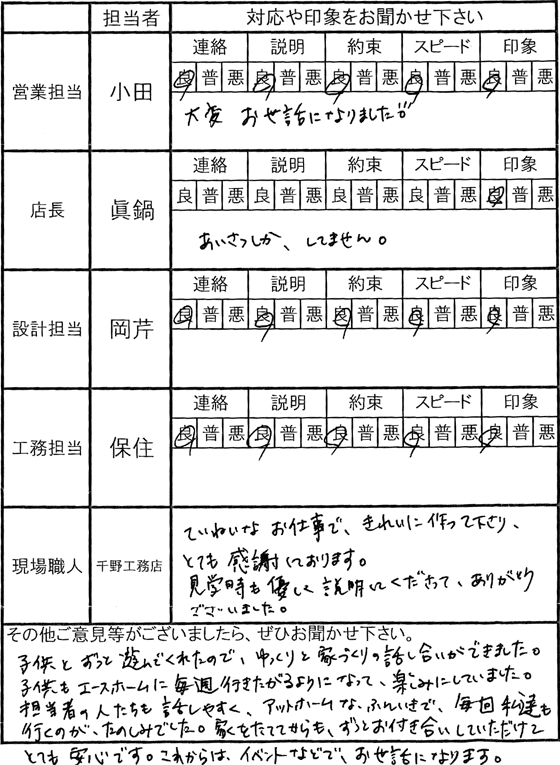 担当者 対応や印象をお聞かせ下さい
連絡 説明 約束 スピード 印象
営業担当 小田 良 普 悪 良 普 悪 良 普 悪 良 普 悪 良 普 悪
大変 お世話になりました!!
連絡 説明 約束 スピード 印象
店長 眞鍋 良 普 悪 良 普 悪 良 普 悪 良 普 悪 良 普 悪
あいさつしか、してません。
連絡 説明 約束 スピード 印象
設計担当 岡芹 良 普 悪 良 普 悪 良 普 悪 良 普 悪 良 普 悪
連絡 説明 約束 スピード 印象
工務担当 保住 良 普 悪 良 普 悪 良 普 悪 良 普 悪 良 普 悪
現場職人 千野工務店
ていねいな お仕事で、きれいに作って下さり、
とても 感謝しております。
見学時も優しく説明してくださって、ありがとう
ございました。
その他ご意見等がございましたら、ぜひお聞かせ下さい。
子供と ずっと 遊んでくれたので、ゆっくりと 家づくりの話し合いができました。
子供も エースホームに 毎週 行きたがるようになって、楽しみにしていました。
担当者の人たちも 話しやすく、アットホームな、ふんいきで、毎回 私達も
行くのが、たのしみでした。家をたててからも、ずっとお付き合いしていただけて
とても 安心です。これからは、イベントなどで、お世話になります。